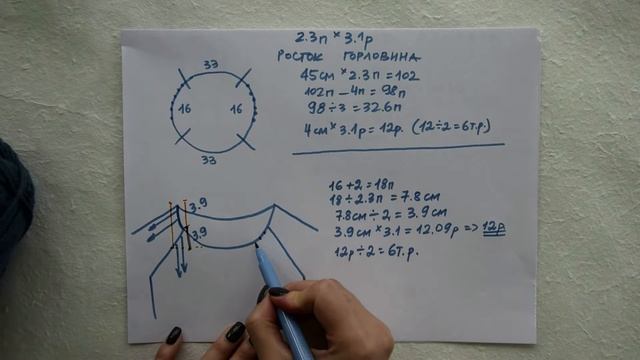 2.3п × 3.1р
РОСТОК ГОРЛОВИНА
45см × 2.3п = 102
102п – 4п = 98п
98 ÷ 3 = 32.6п
4см × 3.1р = 12р. (12÷2=6т.р.)
33
16 16
33
16 + 2 = 18п
18 ÷ 2.3п = 7.8см
7.8см ÷ 2 = 3.9см
3.9см × 3.1 = 12.09р => 12р
12р ÷ 2 = 6т.р.
3.9
3.9